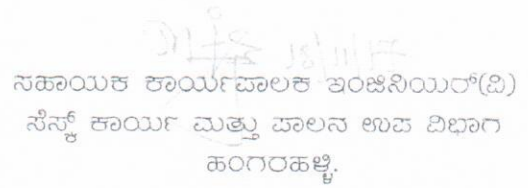 18/11/17
ಸಹಾಯಕ ಕಾರ್ಯಪಾಲಕ ಇಂಜಿನಿಯರ್(ವಿ)
ಸೆಸ್ಕ್ ಕಾರ್ಯ ಮತ್ತು ಪಾಲನ ಉಪ ವಿಭಾಗ
ಹಂಗರಹಳ್ಳಿ.